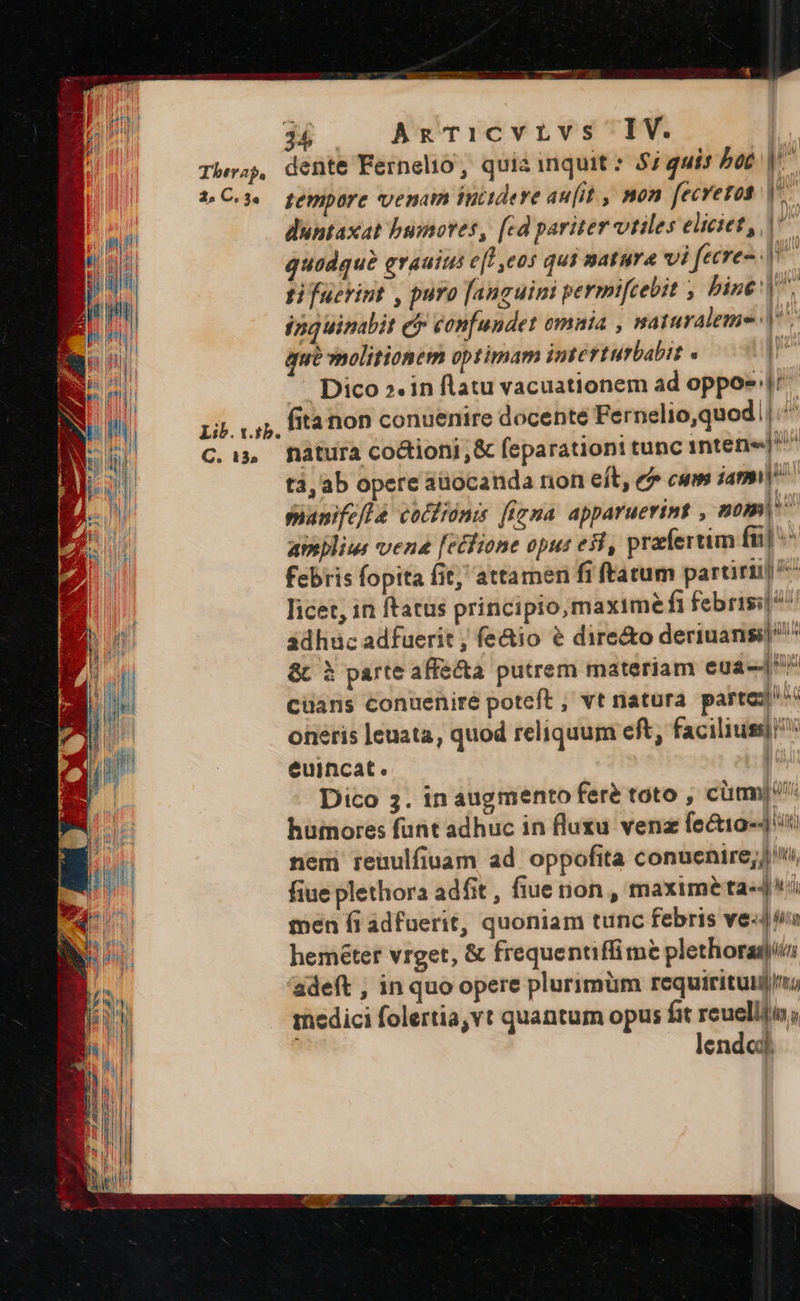 34 ARTICVLVS IV.
Therap. dente Fernelio, quia inquit : Si quis hoc
2. C. 3. tempore venam incidere ausit, non secretos
duntaxat humores, sed pariter vtiles eliciet,
quodquè grauius est, eos qui natura vi secre-
ti fuerint, puro sanguini permiscebit, hinc
inquinabit & confundet omnia, naturalem-
què molitionem optimam interturbabit.
Dico 2. in statu vacuationem ad oppo-
Lib. t.sb. sita non conuenire docente Fernelio, quod
C. 13. natura coctioni, & separationi tunc inten-
ta, ab opere auocanda non est, & cum iam
manifesta coctionis signa apparuerint, non
amplius venæ sectione opus est, præsertim si
febris sopita sit, attamen si statum partiri
licet, in status principio, maximè si febris
adhuc adfuerit, sectio è directo deriuans
& à parte affecta putrem materiam eua-
cuans conuenire potest, vt natura parte
oneris leuata, quod reliquum est, facilius
euincat.
Dico 3. in augmento ferè toto, cùm
humores sunt adhuc in fluxu venæ sectio-
nem reuulsiuam ad opposita conuenire,
siue plethora adsit, siue non, maximè ta-
men si adfuerit, quoniam tunc febris ve-
hemẽter vrget, & frequentissimè plethora
adest, in quo opere plurimùm requiritur
medici solertia, vt quantum opus sit reuel-
lendo